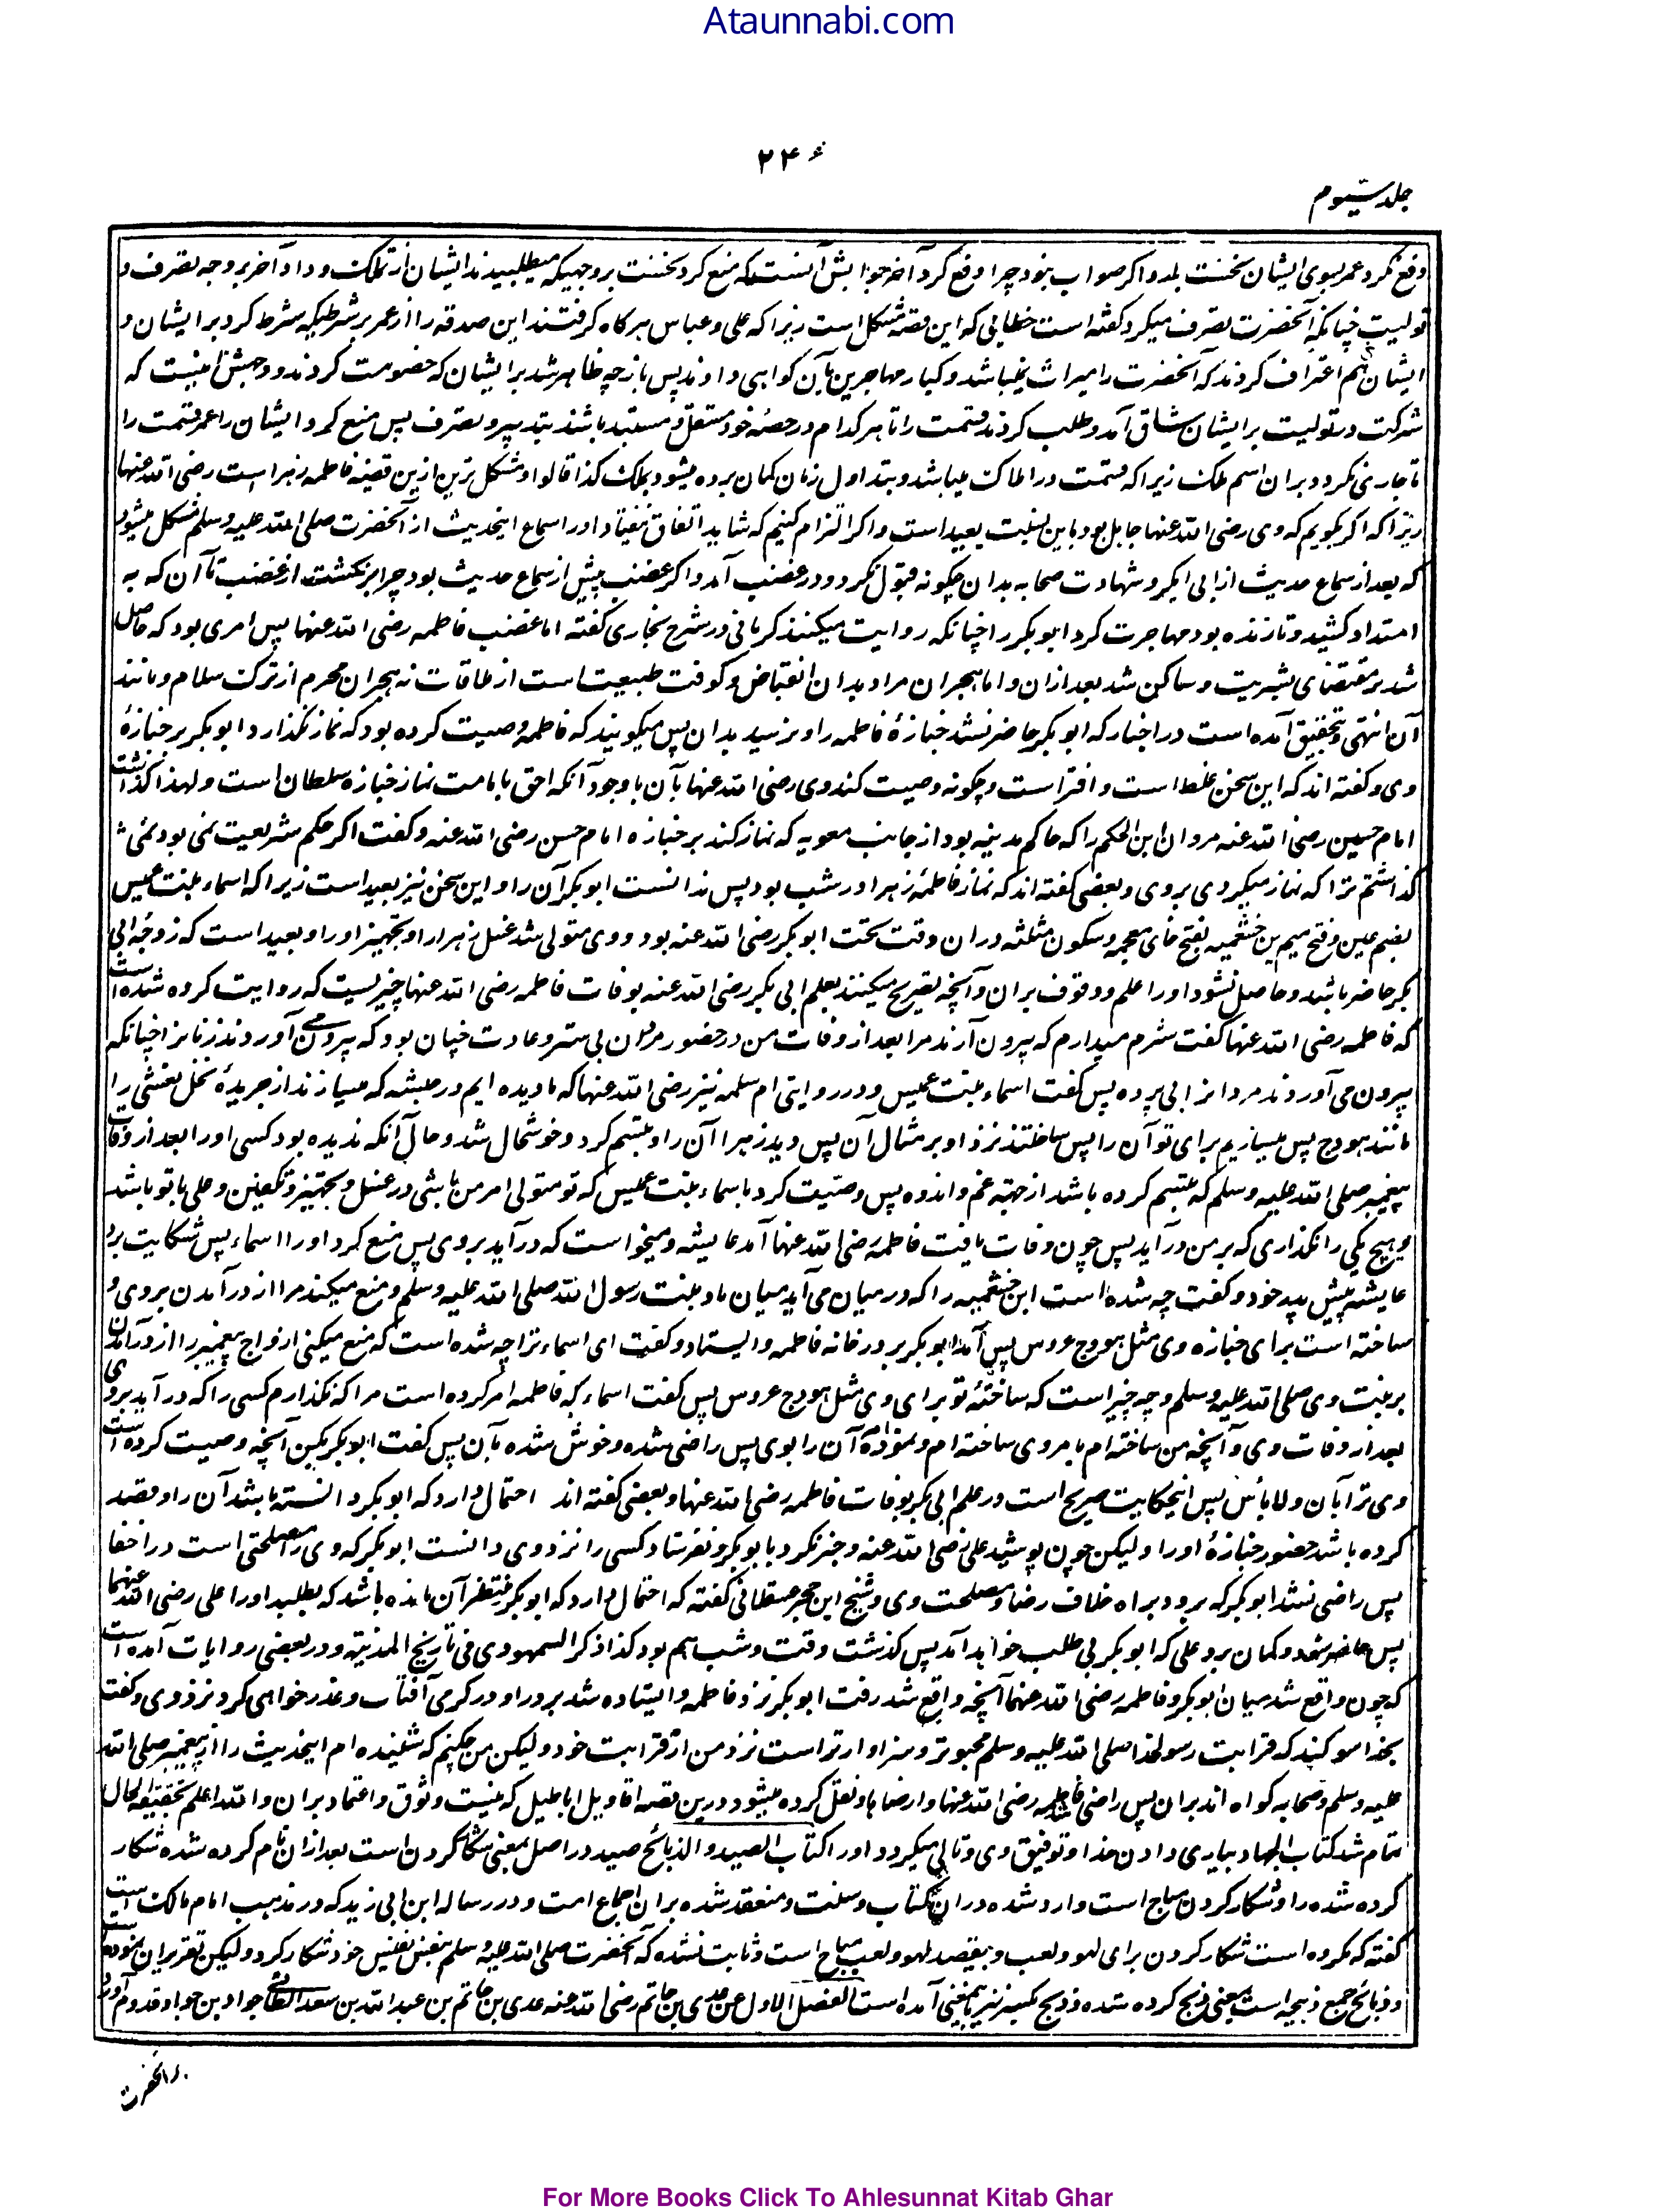 Ataunnabi.com
۲۴
جلد سیوم
دفع نکرد عمر بسوی ایشان نخست بلد و اگر صواب نبود چرا دفع کرد آخر جوابش آنست که منع کرد نخست بروجهیکه میطلبیدند ایشان از تملک و داد آخر بروجه تصرف و
تولیت چنانکه آنحضرت تصرف میکرد گفته است خطابی که این قصه مشکل است زیرا که علی و عباس هرگاه گرفتند این صدقه را از عمر بر شرطیکه شرط کرد بر ایشان و
ایشان هم اعتراف کردند که آنحضرت را میراث نمیباشد و کبار مهاجرین بآن گواهی دادند پس باز چه ظاهر شد بر ایشان که خصومت کردند و وجهش اینست که
شرکت در تولیت بر ایشان شاق آمد و طلب کردند قسمت را تا هر کدام در حصهٔ خود مستقل و مستبد باشند بتدبیر و تصرف پس منع کرد ایشان را عمر قسمت را
تا جاری نگردد بران اسم ملک زیرا که قسمت در املاک میباشد و بتداول زمان گمان برده میشود بملک کذا قالوا و مشکل ترین ازین قضیه فاطمه زهرا است رضی الله عنها
زیرا که اگر بگویم که وی رضی الله عنها جاهل بود باین سنت بعید است و اگر التزام کنیم که شاید اتفاق نیفتاد او را سماع اینحدیث از آنحضرت صلی الله علیه وسلم مشکل میشود
که بعد از سماع حدیث از ابی ابکر و شهادت صحابه بدان چگونه قبول نکرد و در غضب آمد و اگر غضب پیش از سماع حدیث بود چرا برنگشت از غضب تا آن که به
امتداد کشید و تا زنده بود مهاجرت کرد ابوبکر را چنانکه روایت میکنند کرمانی در شرح بخاری گفته اما غضب فاطمه رضی الله عنها پس امری بود که حاصل
شد بر مقتضای بشریت و ساکن شد بعد ازان و اما هجران مراد بدان انقباض و کوفت طبیعت است از ملاقات نه هجران محرم از ترک سلام و مانند
آن انتهی و تحقیق آمده است در اخبار که ابوبکر حاضر نشد جنازهٔ فاطمه را و نرسید بدان پس میگویند که فاطمه وصیت کرده بود که نماز نگذارد ابوبکر بر جنازهٔ
وی و گفته اند که این سخن غلط است و افتراست و چگونه وصیت کند وی رضی الله عنها بآن با وجود آنکه احق بامامت نماز جنازه سلطان است و لهذا گذاشت
امام حسین رضی الله عنه مروان ابن الحکم را که حاکم مدینه بود از جانب معویه که نماز کند بر جنازه امام حسن رضی الله عنه و گفت اگر حکم شریعت نمی بود نمی
گذاشتم ترا که نماز میکردی بروی و بعضی گفته اند که نماز فاطمهٔ زهرا در شب بود پس ندانست ابوبکر آن را و این سخن نیز بعید است زیرا که اسماء بنت عمیس
بضم عین و فتح میم بن خثعمیه بفتح خای معجمه و سکون مثلثه دران وقت تحت ابوبکر رضی الله عنه بود و وی متولی شد غسل زهرا را و تجهیز او را و بعید است که زوجهٔ ابی
بکر حاضر باشد و حاصل نشود او را علم و وقوف بران و آنچه تصریح میکنند بعلم ابی بکر رضی الله عنه بوفات فاطمه رضی الله عنها چیزیست که روایت کرده شده است
که فاطمه رضی الله عنها گفت شرم میدارم که بیرون آرند مرا بعد از وفات من در حضور مردان بی ستر و عادت چنان بود که بیرون می آوردند زنانرا چنانکه
بیرون می آوردند مردانرا بی پرده پس گفت اسماء بنت عمیس و در روایتی ام سلمه نیز رضی الله عنها که ما دیده ایم در حبشه که میسازند از جریدهٔ نخل نعشی را
مانند هودج پس میسازیم برای تو آن را پس ساختند نزد او بر مثال آن پس دید زهرا آن را و تبسم کرد و خوشحال شد و حال آنکه ندیده بود کسی او را بعد از وفات
پیغمبر صلی الله علیه وسلم که تبسم کرده باشد از جهته غم و اندوه پس وصیت کرد باسماء بنت عمیس که تو متولی امر من باشی در غسل و تجهیز و تکفین و علی با تو باشد
و هیچ یکی را نگذاری که بر من درآید پس چون وفات یافت فاطمه رضی الله عنها آمد عایشه و میخواست که درآید بروی پس منع کرد او را اسماء پس شکایت برد
عایشه پیش پدر خود و گفت چه شده است این خثعمیه را که در میان می آید میان ما و بنت رسول الله صلی الله علیه وسلم و منع میکند مرا از در آمدن بروی و
ساخته است برای جنازه وی مثل هودج عروس پس آمد ابوبکر بر در خانه فاطمه و ایستاد و گفت ای اسماء ترا چه شده است که منع میکنی ازواج پیغمبر را از در آمدن
بر بنت وی صلی الله علیه وسلم و چه چیز است که ساختهٔ تو برای وی مثل هودج عروس پس گفت اسماء که فاطمه امر کرده است مرا که نگذارم کسی را که درآید بروی
بعد از وفات وی و آنچه من ساخته ام بامر وی ساخته ام و نموده ام آن را بوی پس راضی شده و خوش شده بآن پس گفت ابوبکر بکن آنچه وصیت کرده است
وی ترا بآن و لا باس پس اینحکایت صریح است در علم ابی بکر بوفات فاطمه رضی الله عنها و بعضی گفته اند احتمال دارد که ابوبکر دانسته باشد آن را و قصد
کرده باشد حضور جنازهٔ او را ولیکن چون پوشید علی رضی الله عنه و خبر نکرد بابوبکر و نفرستاد کسی را نزد وی دانست ابوبکر که وی را مصلحتی است در اخفا
پس راضی نشد ابوبکر که برود براه خلاف رضا و مصلحت وی و شیخ ابن حجر عسقلانی گفته که احتمال دارد که ابوبکر منتظر آن مانده باشد که بطلبد او را علی رضی الله عنهما
پس حاضر شود و گمان برد علی که ابوبکر بی طلب خواهد آمد پس گذشت وقت و شب هم بود کذا ذکر السمهودی فی تاریخ المدینة و در بعضی روایات آمده است
که چون واقع شد میان ابوبکر و فاطمه رضی الله عنهما آنچه واقع شد رفت ابوبکر نزد فاطمه و ایستاده شد بر در او در گرمی آفتاب و عذرخواهی کرد نزد وی و گفت
بخدا سوگند که قرابت رسول خدا صلی الله علیه وسلم محبوبتر و سزاوارتر است نزد من از قرابت خود ولیکن من چکنم که شنیده ام اینحدیث را از پیغمبر صلی الله
علیه وسلم و صحابه گواه اند بران پس راضی شد فاطمه رضی الله عنها و ارضا باو نقل کرده میشود درین قصه اقاویل اباطیل که نیست وثوق و اعتماد بران و الله اعلم بحقیقة الحال
تمام شد کتاب الجهاد بیاری دادن خدا و توفیق وی وتالی میگردد او را کتاب الصید و الذبائح صید در اصل بمعنی شکار کردن است بعد ازان نام کرده شده شکار
کرده شده را و شکار کردن مباح است وارد شده دران کتاب و سنت و منعقد شده بران اجماع امت و در رساله ابن ابی زید که در مذهب امام مالک است
گفته که مکروه است شکار کردن برای لهو و لعب و بقصد لهو و لعب مباح است و ثابت نشده که آنحضرت صلی الله علیه وسلم بنفس نفیس خود شکار کرد ولیکن تقریر بران نموده
و ذبائح جمع ذبیحه است بمعنی ذبح کرده شده و ذبح بکسر نیز باینمعنی آمده است الفصل الاول عن عدی بن حاتم رضی الله عنه عدی بن حاتم بن عبد الله بن سعد الطائی جواد بن جواد و قدوم آورد
بر آنحضرت
For More Books Click To Ahlesunnat Kitab Ghar